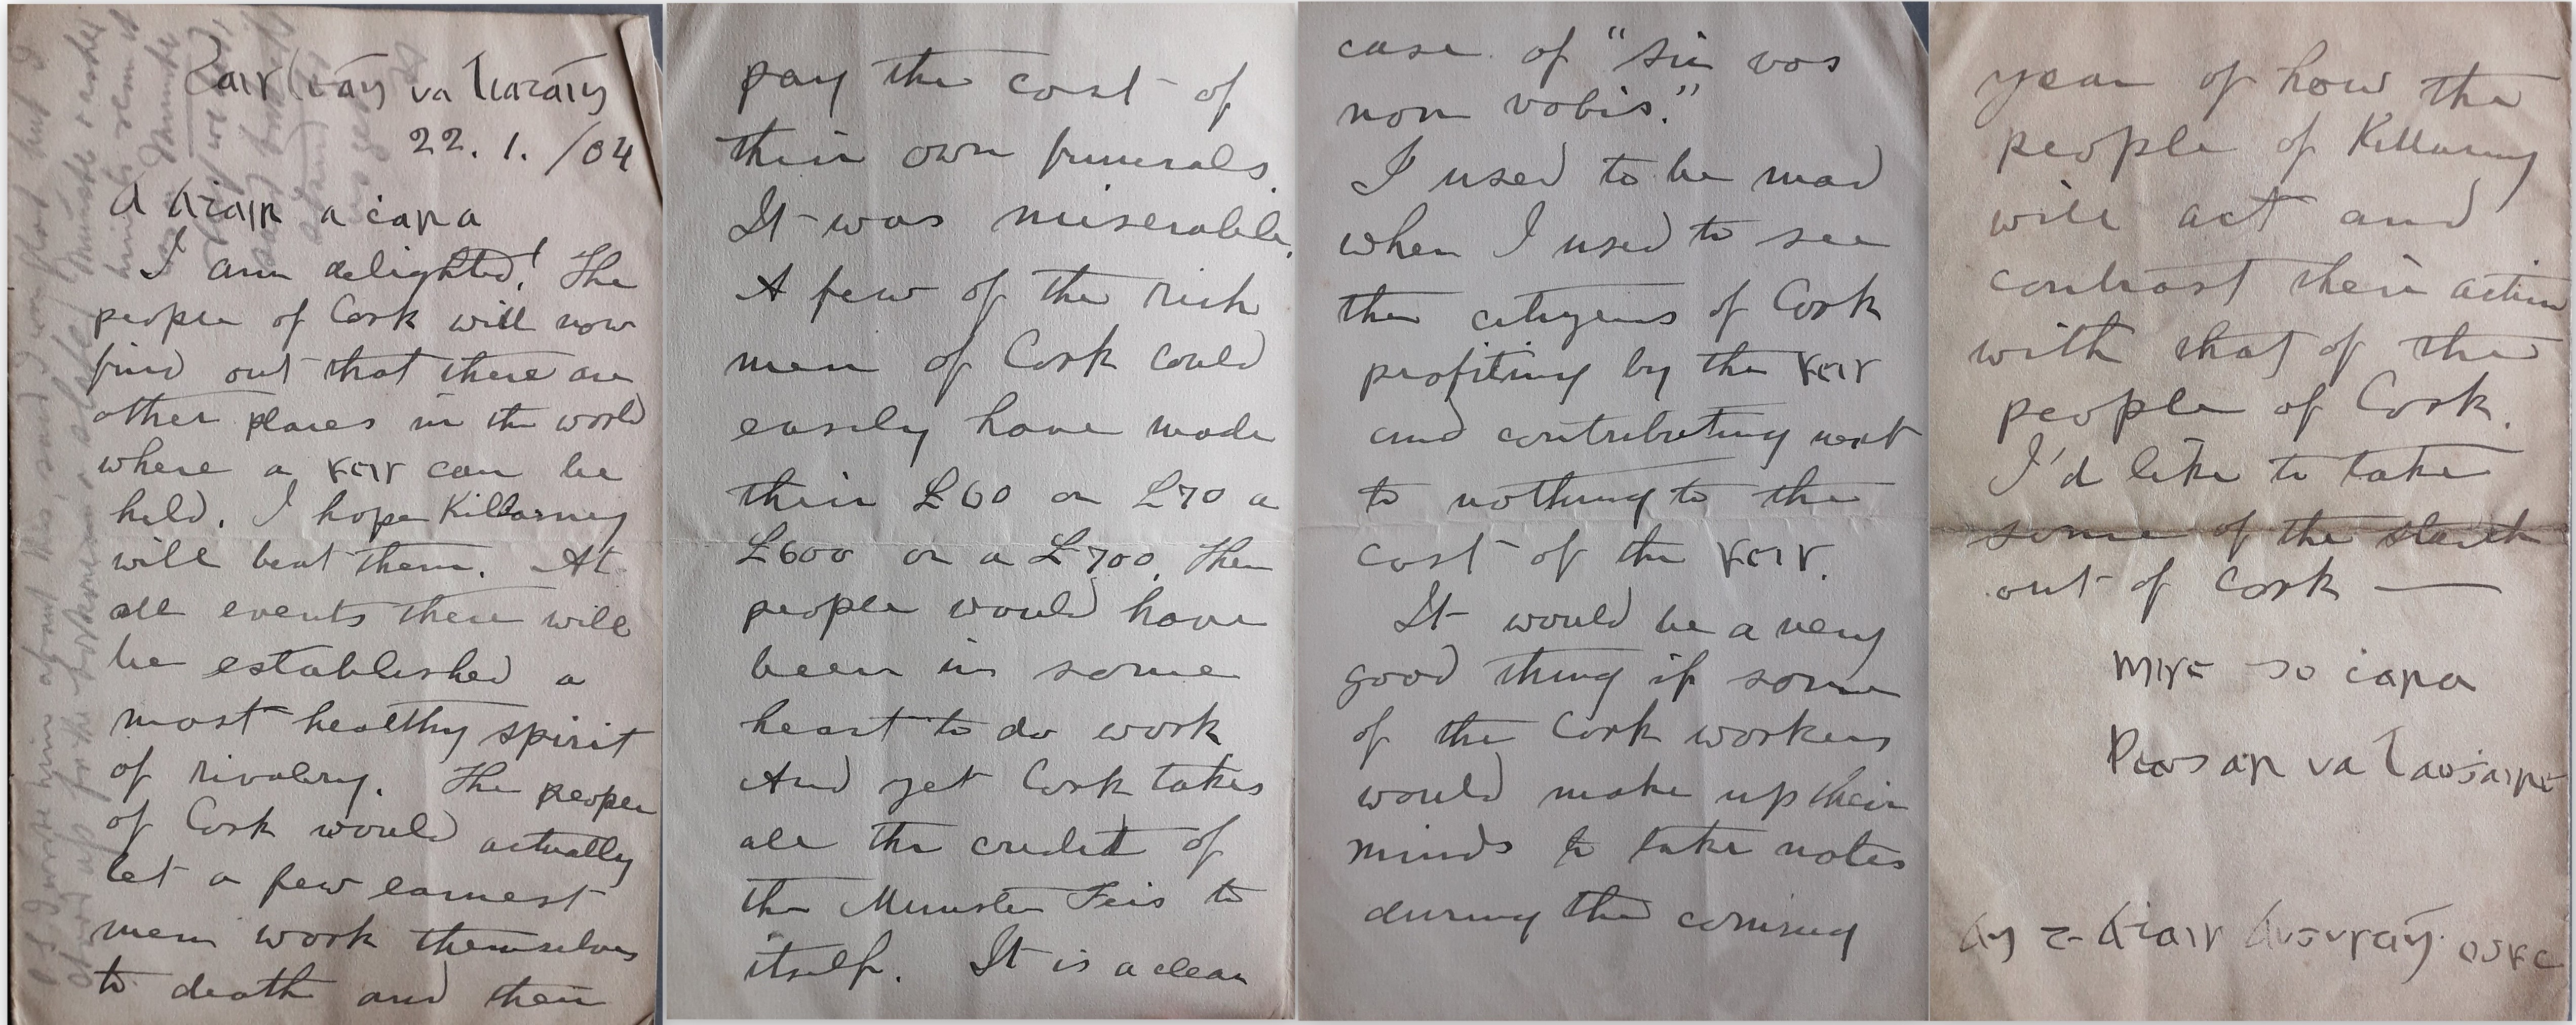 22. 1. /04
A Aṫair a ċara
I am delighted! The
people of Cork will now
find out that there are
other places in the world
where a feis can be
held. I hope Killarney
will beat them. At
all events there will
be established a
most healthy spirit
of rivalry. The people
of Cork would actually
let a few earnest
men work themselves
to death and then
pay the cost of
their own funerals.
It was miserable.
A few of the rich
men of Cork could
easily have made
their £60 or £70 a
£600 or a £700. Then
people would have
been in some
heart to do work
And yet Cork takes
all the credit of
the Munster Feis to
itself. It is a clear
case of "sic vos
non vobis."
I used to be mad
when I used to see
the citizens of Cork
profiting by the feis
and contributing next
to nothing to the
cost of the feis.
It would be a very
good thing if some
of the Cork workers
would make up their
minds to take notes
during the coming
year of how the
people of Killarney
will act and
contrast their action
with that of the
people of Cork.
I'd like to take
some of the starch
out of Cork —
mise do ċara
Peadar ua Laoġaire